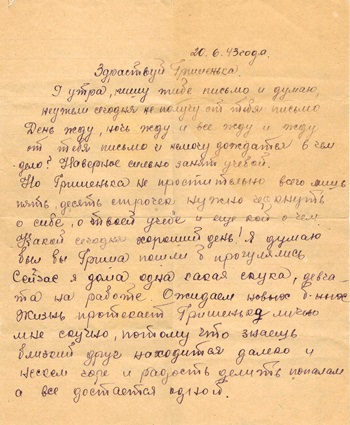 20.6.43 года.
Здраствуй Гришенька.
Я утра, пишу тибе письмо и думаю,
неужли сегодня не получу от тебя письмо
День жду, ночь жду и все жду и жду
от тебя письмо и немогу дождатся в чем
дело? Наверное сильно занят учебой.
Но Гришенька не простительно всего лишь
пять, десять строчек нужно черкнуть
о себе, о твоей учебе и еще кой о чем.
Какой сегодня хороший день! Я думаю
был бы Гриша пошли б прогулялись
Сейчас я дома одна такая скука, девча-
та на работе. Ожидаем новых б-ных
Жизнь протекает Гришенька лично
мне скучно, потому что знаешь
близкий друг находится далеко и
нескем горе и радость делить пополам
а все достается одной.